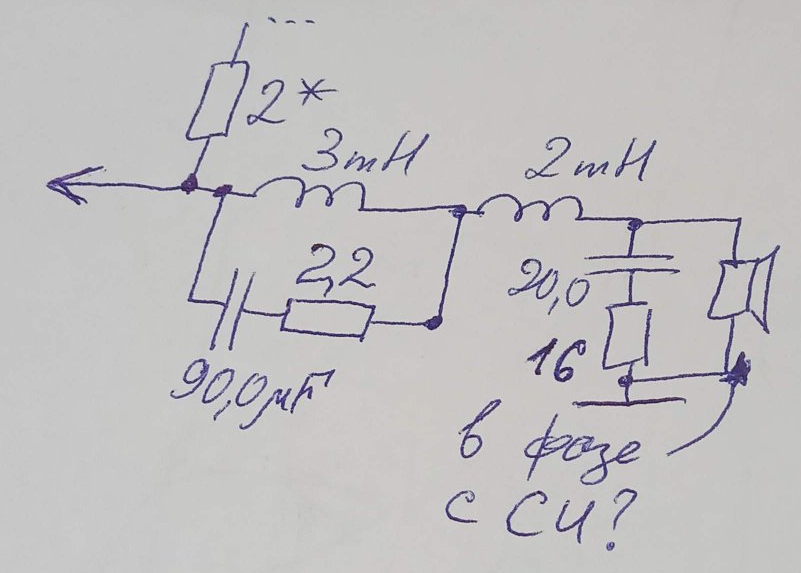 2*
3mH
2mH
2,2
20,0
90,0μF
16
в фазе
с СЧ?